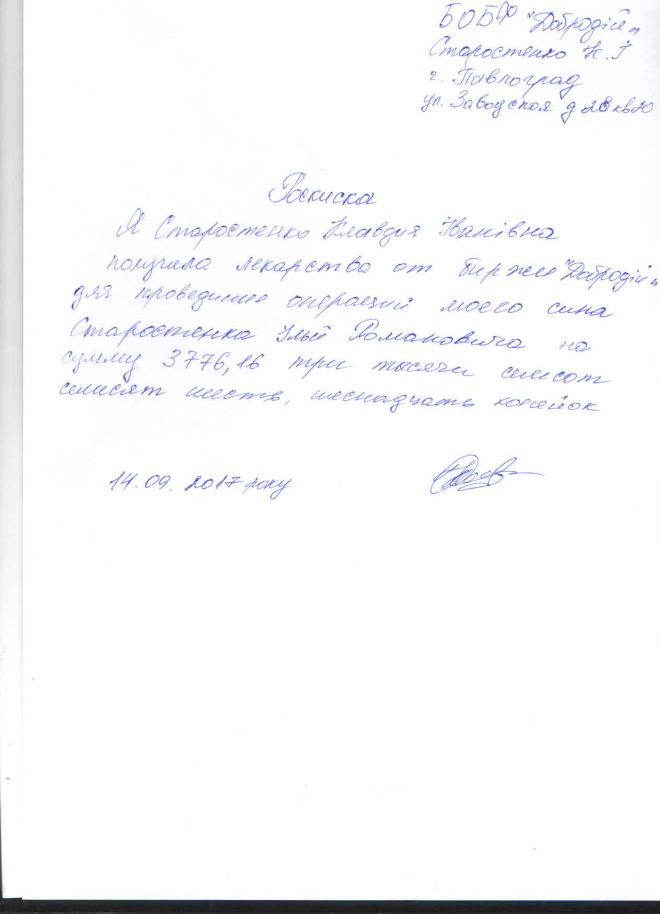 БОБФ "Добродій"
Старостенко К.І
г. Павлоград
ул. Заводская д 28 кв 20
Роскиска
Я Старостенко Клавдия Іванівна
получила лекарство от биржи "Добродій"
для провединие операций моего сина
Старостенка Романовича на
сумму 3776,16 три тысячи симсот
семисят шесть, шеснадцать копейок
14.09.2017 року